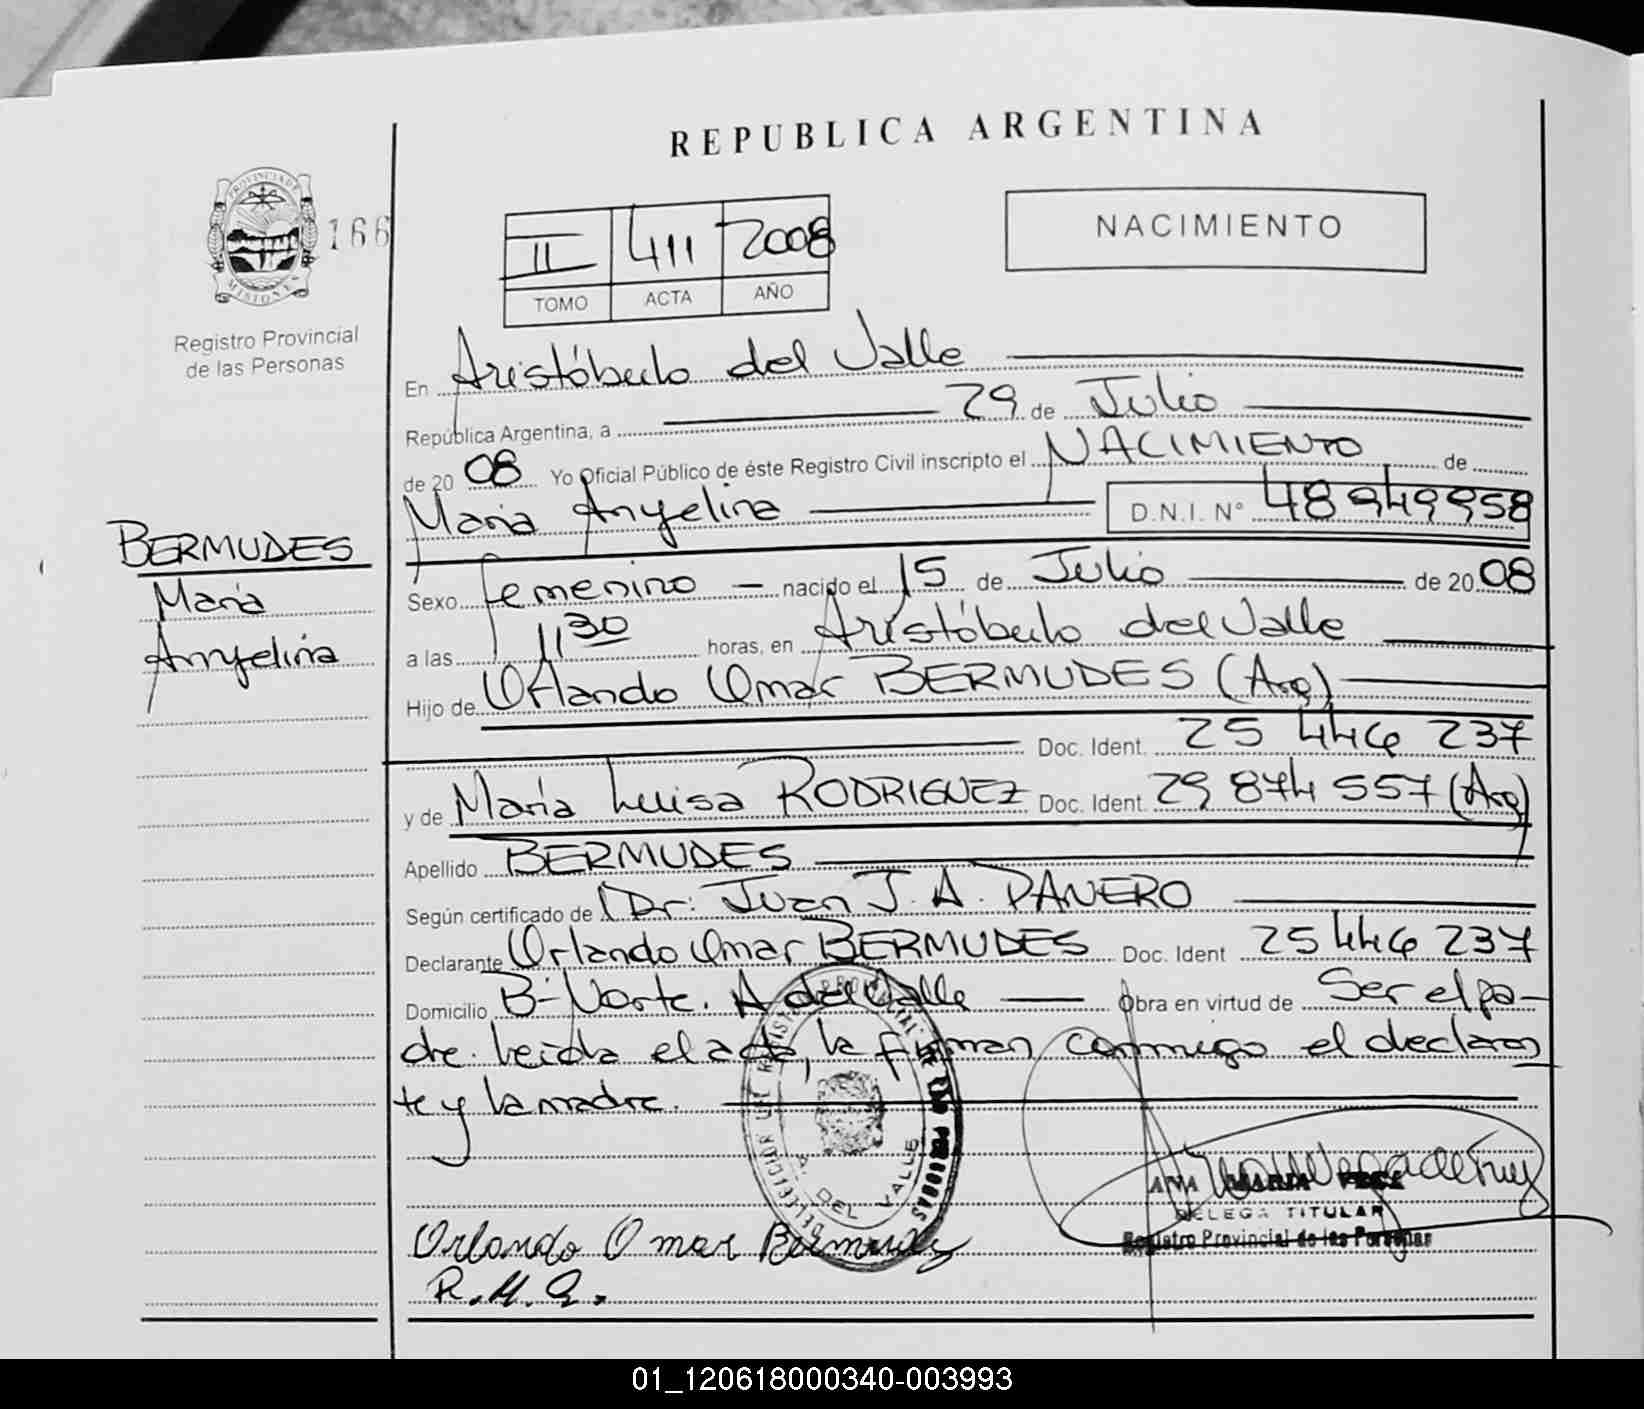 REPUBLICA ARGENTINA
PROVINCIA DE
MISIONES
166
Registro Provincial
de las Personas
II 411 2008
TOMO ACTA AÑO
NACIMIENTO
En Aristóbulo del Valle
República Argentina, a 29 de Julio
de 20 08 Yo Oficial Público de éste Registro Civil inscripto el NACIMIENTO de
María Anyelina D.N.I. N° 48 949958
BERMUDES
María
Anyelina
Sexo femenino nacido el 15 de Julio de 20 08
a las 11 30 horas, en Aristóbulo del Valle
Hijo de Orlando Omar BERMUDES (Arg)
Doc. Ident. 25 446 237
y de María Luisa RODRIGUEZ Doc. Ident. 29 874 557 (Arg)
Apellido BERMUDES
Según certificado de Dr: Juan J. A. PANERO
Declarante Orlando Omar BERMUDES Doc. Ident 25 446 237
Domicilio B- Norte. A del Valle Obra en virtud de Ser el pa-
dre. Leida el acta, la firman conmigo el declaran
te y la madre.
A. DEL VALLE
ANA MARIA
DELEGA TITULAR
Registro Provincial de las Personas
Orlando Omar Bermudes
R.M.L.
01_120618000340-003993